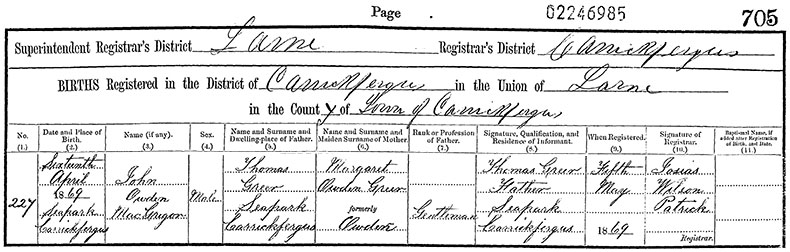 Page 02246985 705
Superintendent Registrar's District Larne Registrar's District Carrickfergus
BIRTHS Registered in the District of Carrickfergus in the Union of Larne
in the County of Town of Carrickfergus
No. (1.) Date and Place of Birth. (2.) Name (if any). (3.) Sex. (4.) Name and Surname and Dwelling-place of Father. (5.) Name and Surname and Maiden Surname of Mother. (6.) Rank or Profession of Father. (7.) Signature, Qualification, and Residence of Informant. (8.) When Registered. (9.) Signature of Registrar. (10.) Baptismal Name, if added after Registration of Birth, and Date. (11.)
227 Sixteenth April 1869 Seapark Carrickfergus
John Owden MacGregor
Male
Thomas Greer Seapark Carrickfergus
Margaret Owden Greer formerly Owden
Gentleman
Thomas Greer Father Seapark Carrickfergus
Fifth May 1869
Josias Wilson Patrick Registrar.